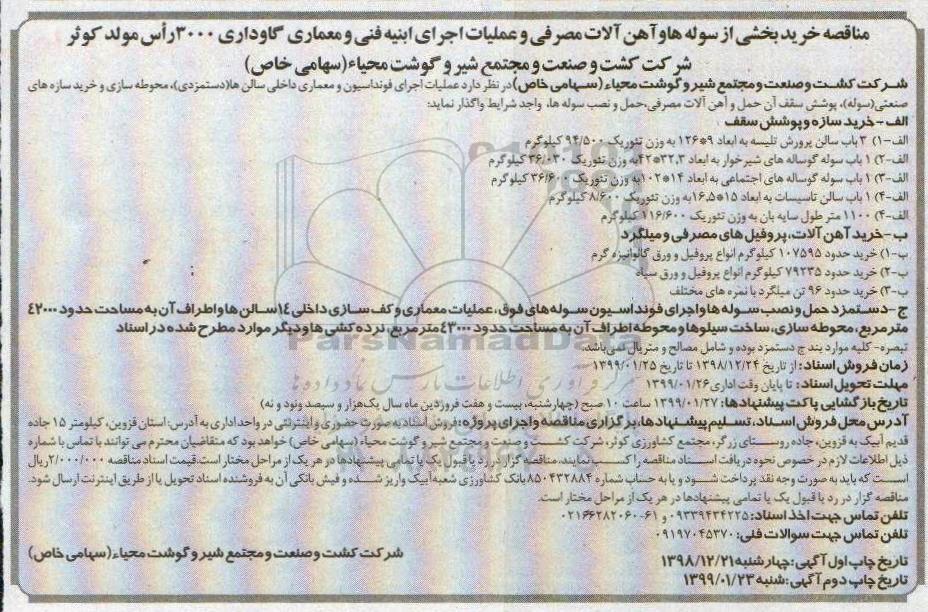 مناقصه خرید بخشی از سوله ها و آهن آلات مصرفی و عملیات اجرای ابنیه فنی و معماری گاوداری ۳۰۰۰ رأس مولد کوثر
شرکت کشت و صنعت و مجتمع شیر و گوشت محیاء (سهامی خاص)
شرکت کشت و صنعت و مجتمع شیر و گوشت محیاء (سهامی خاص) در نظر دارد عملیات اجرای فونداسیون و معماری داخلی سالن ها (دستمزدی)، محوطه سازی و خرید سازه های
صنعتی (سوله)، پوشش سقف آن حمل و آهن آلات مصرفی، حمل و نصب سوله ها، واجد شرایط واگذار نماید:
الف-خرید سازه و پوشش سقف
الف-۱) ۳ باب سالن پرورش تلیسه به ابعاد ۹*۱۲۶ به وزن تئوریک ۹۴/۵۰۰ کیلوگرم
الف-۲) ۱ باب سوله گوساله های شیرخوار به ابعاد ۳۲,۳*۴۲ به وزن تئوریک ۳۶/۰۳۰ کیلوگرم
الف-۳) ۱ باب سوله گوساله های اجتماعی به ابعاد ۱۴*۱۰۲ به وزن تئوریک ۳۶/۶۰۰ کیلوگرم
الف-۴) ۱ باب سالن تاسیسات به ابعاد ۱۵*۱۶,۵ به وزن تئوریک ۸/۶۰۰ کیلوگرم
الف-۴) ۱۱۰۰ متر طول سایه بان به وزن تئوریک ۱۱۶/۶۰۰ کیلوگرم
ب-خرید آهن آلات، پروفیل های مصرفی و میلگرد
ب-۱) خرید حدود ۱۰۷۵۹۵ کیلوگرم انواع پروفیل و ورق گالوانیزه گرم
ب-۲) خرید حدود ۷۹۲۳۵ کیلوگرم انواع پروفیل و ورق سیاه
ب-۳) خرید حدود ۹۶ تن میلگرد با نمره های مختلف
ج-دستمزد حمل و نصب سوله ها و اجرای فونداسیون سوله های فوق، عملیات معماری و کف سازی داخلی ۱۴ سالن ها و اطراف آن به مساحت حدود ۴۲۰۰۰
متر مربع، محوطه سازی، ساخت سیلوها و محوطه اطراف آن به مساحت حدود ۴۳۰۰۰ متر مربع، نرده کشی ها و دیگر موارد مطرح شده در اسناد
تبصره- کلیه موارد بند ج دستمزد بوده و شامل مصالح و متریال نمی باشد.
زمان فروش اسناد: از تاریخ ۱۳۹۸/۱۲/۲۴ تا تاریخ ۱۳۹۹/۰۱/۲۵
مهلت تحویل اسناد: تا پایان وقت اداری ۱۳۹۹/۰۱/۲۶
تاریخ بازگشایی پاکت پیشنهادها: ۱۳۹۹/۰۱/۲۷ ساعت ۱۰ صبح (چهارشنبه، بیست و هفت فروردین ماه سال یک هزار و سیصد و نود و نه)
آدرس محل فروش اسناد، تسلیم پیشنهادها، برگزاری مناقصه و اجرای پروژه: فروش اسناد به صورت حضوری و اینترنتی در واحد اداری به آدرس: استان قزوین، کیلومتر ۱۵ جاده
قدیم آبیک به قزوین، جاده روستای زرگر، مجتمع کشاورزی کوثر، شرکت کشت و صنعت و مجتمع شیر و گوشت محیاء (سهامی خاص) خواهد بود که متقاضیان محترم می توانند با تماس با شماره
ذیل اطلاعات لازم در خصوص نحوه دریافت اسناد مناقصه را کسب نمایند. مناقصه گزار در رد یا قبول یک یا تمامی پیشنهادها در هر یک از مراحل مختار است. قیمت اسناد مناقصه ۲/۰۰۰/۰۰۰ ریال
است که باید به صورت وجه نقد پرداخت شود و یا به حساب شماره ۸۵۰۴۳۲۸۸۴ بانک کشاورزی شعبه آبیک واریز شده و فیش بانکی آن به فروشنده اسناد تحویل یا از طریق اینترنت ارسال شود.
مناقصه گزار در رد یا قبول یک یا تمامی پیشنهادها در هر یک از مراحل مختار است.
تلفن تماس جهت اخذ اسناد: ۰۹۳۳۹۴۳۴۲۲۵ و ۶۱-۰۲۱۶۶۲۸۲۰۶۰
تلفن تماس جهت سوالات فنی: ۰۹۱۹۷۰۴۵۳۷۰
تاریخ چاپ اول آگهی: چهارشنبه ۱۳۹۸/۱۲/۲۱
شرکت کشت و صنعت و مجتمع شیر و گوشت محیاء (سهامی خاص)
تاریخ چاپ دوم آگهی: شنبه ۱۳۹۹/۰۱/۲۳
ParsNamadData